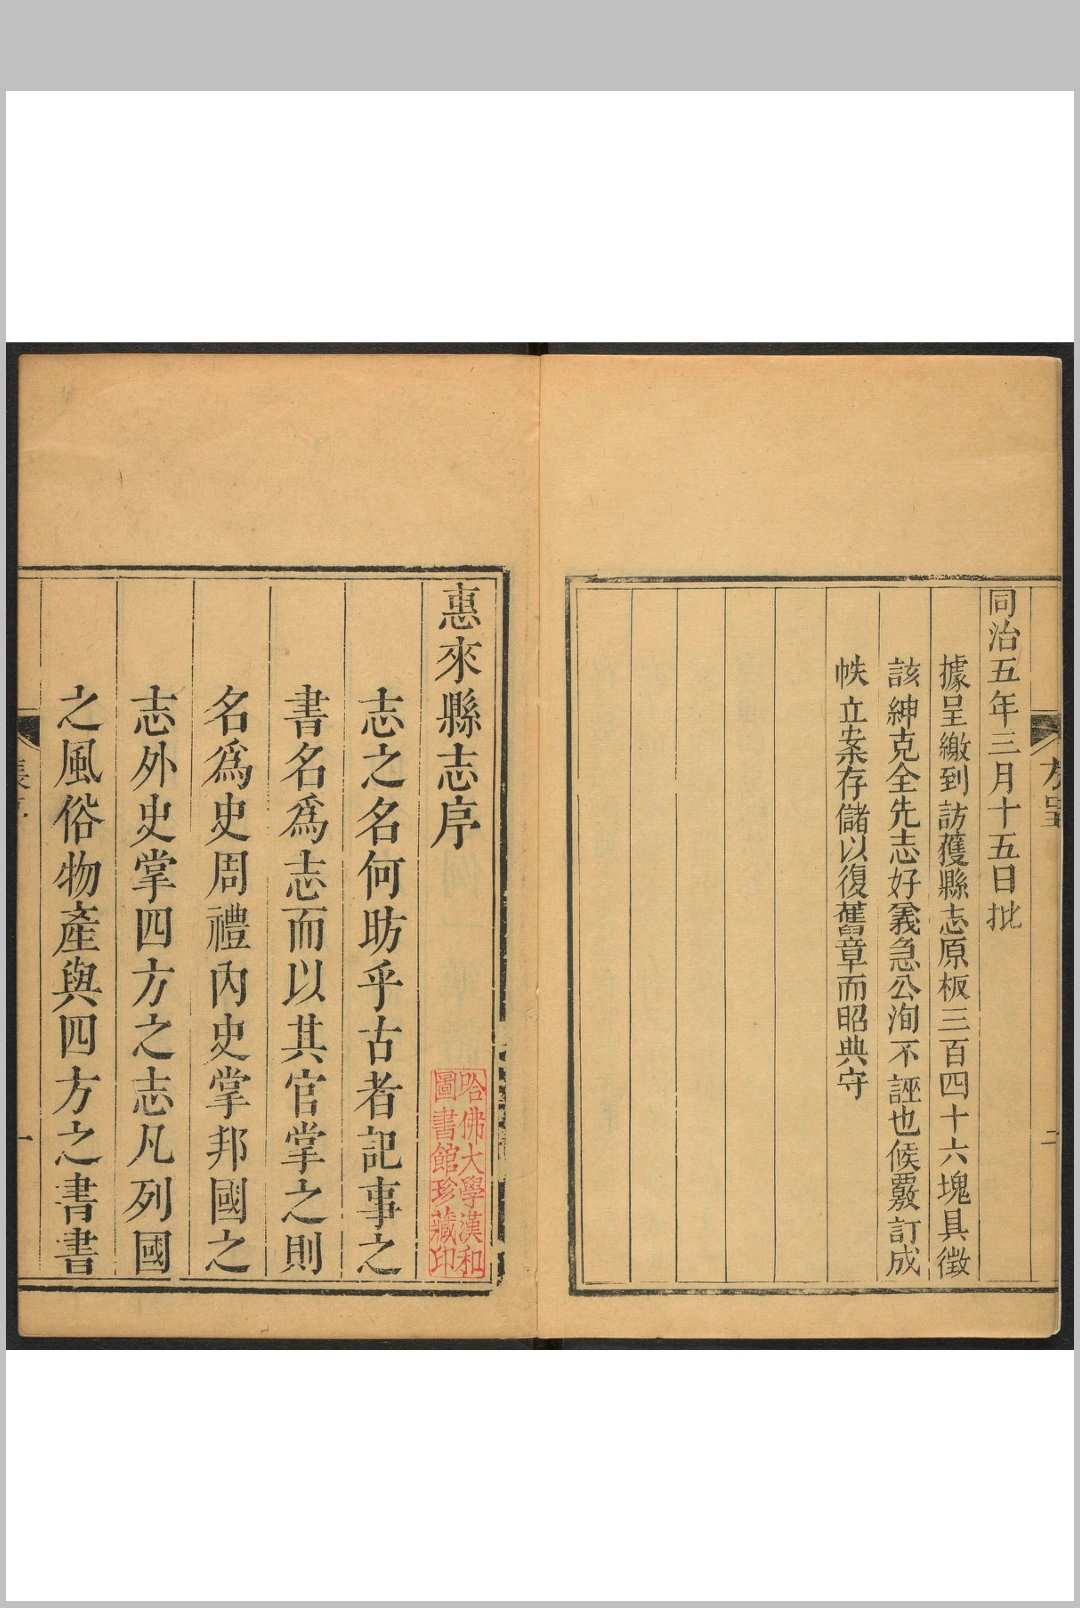 同治五年三月十五日批
據呈繳到訪獲縣志原板三百四十六塊具徵
該紳克全先志好義急公洵不誣也候覈訂成
帙立案存儲以復舊章而昭典守
二
惠來縣志序
哈佛大學漢和
圖書館珍藏印
志之名何昉乎古者記事之
書名爲志而以其官掌之則
名爲史周禮內史掌邦國之
志外史掌四方之志凡列國
之風俗物產與四方之書書
一